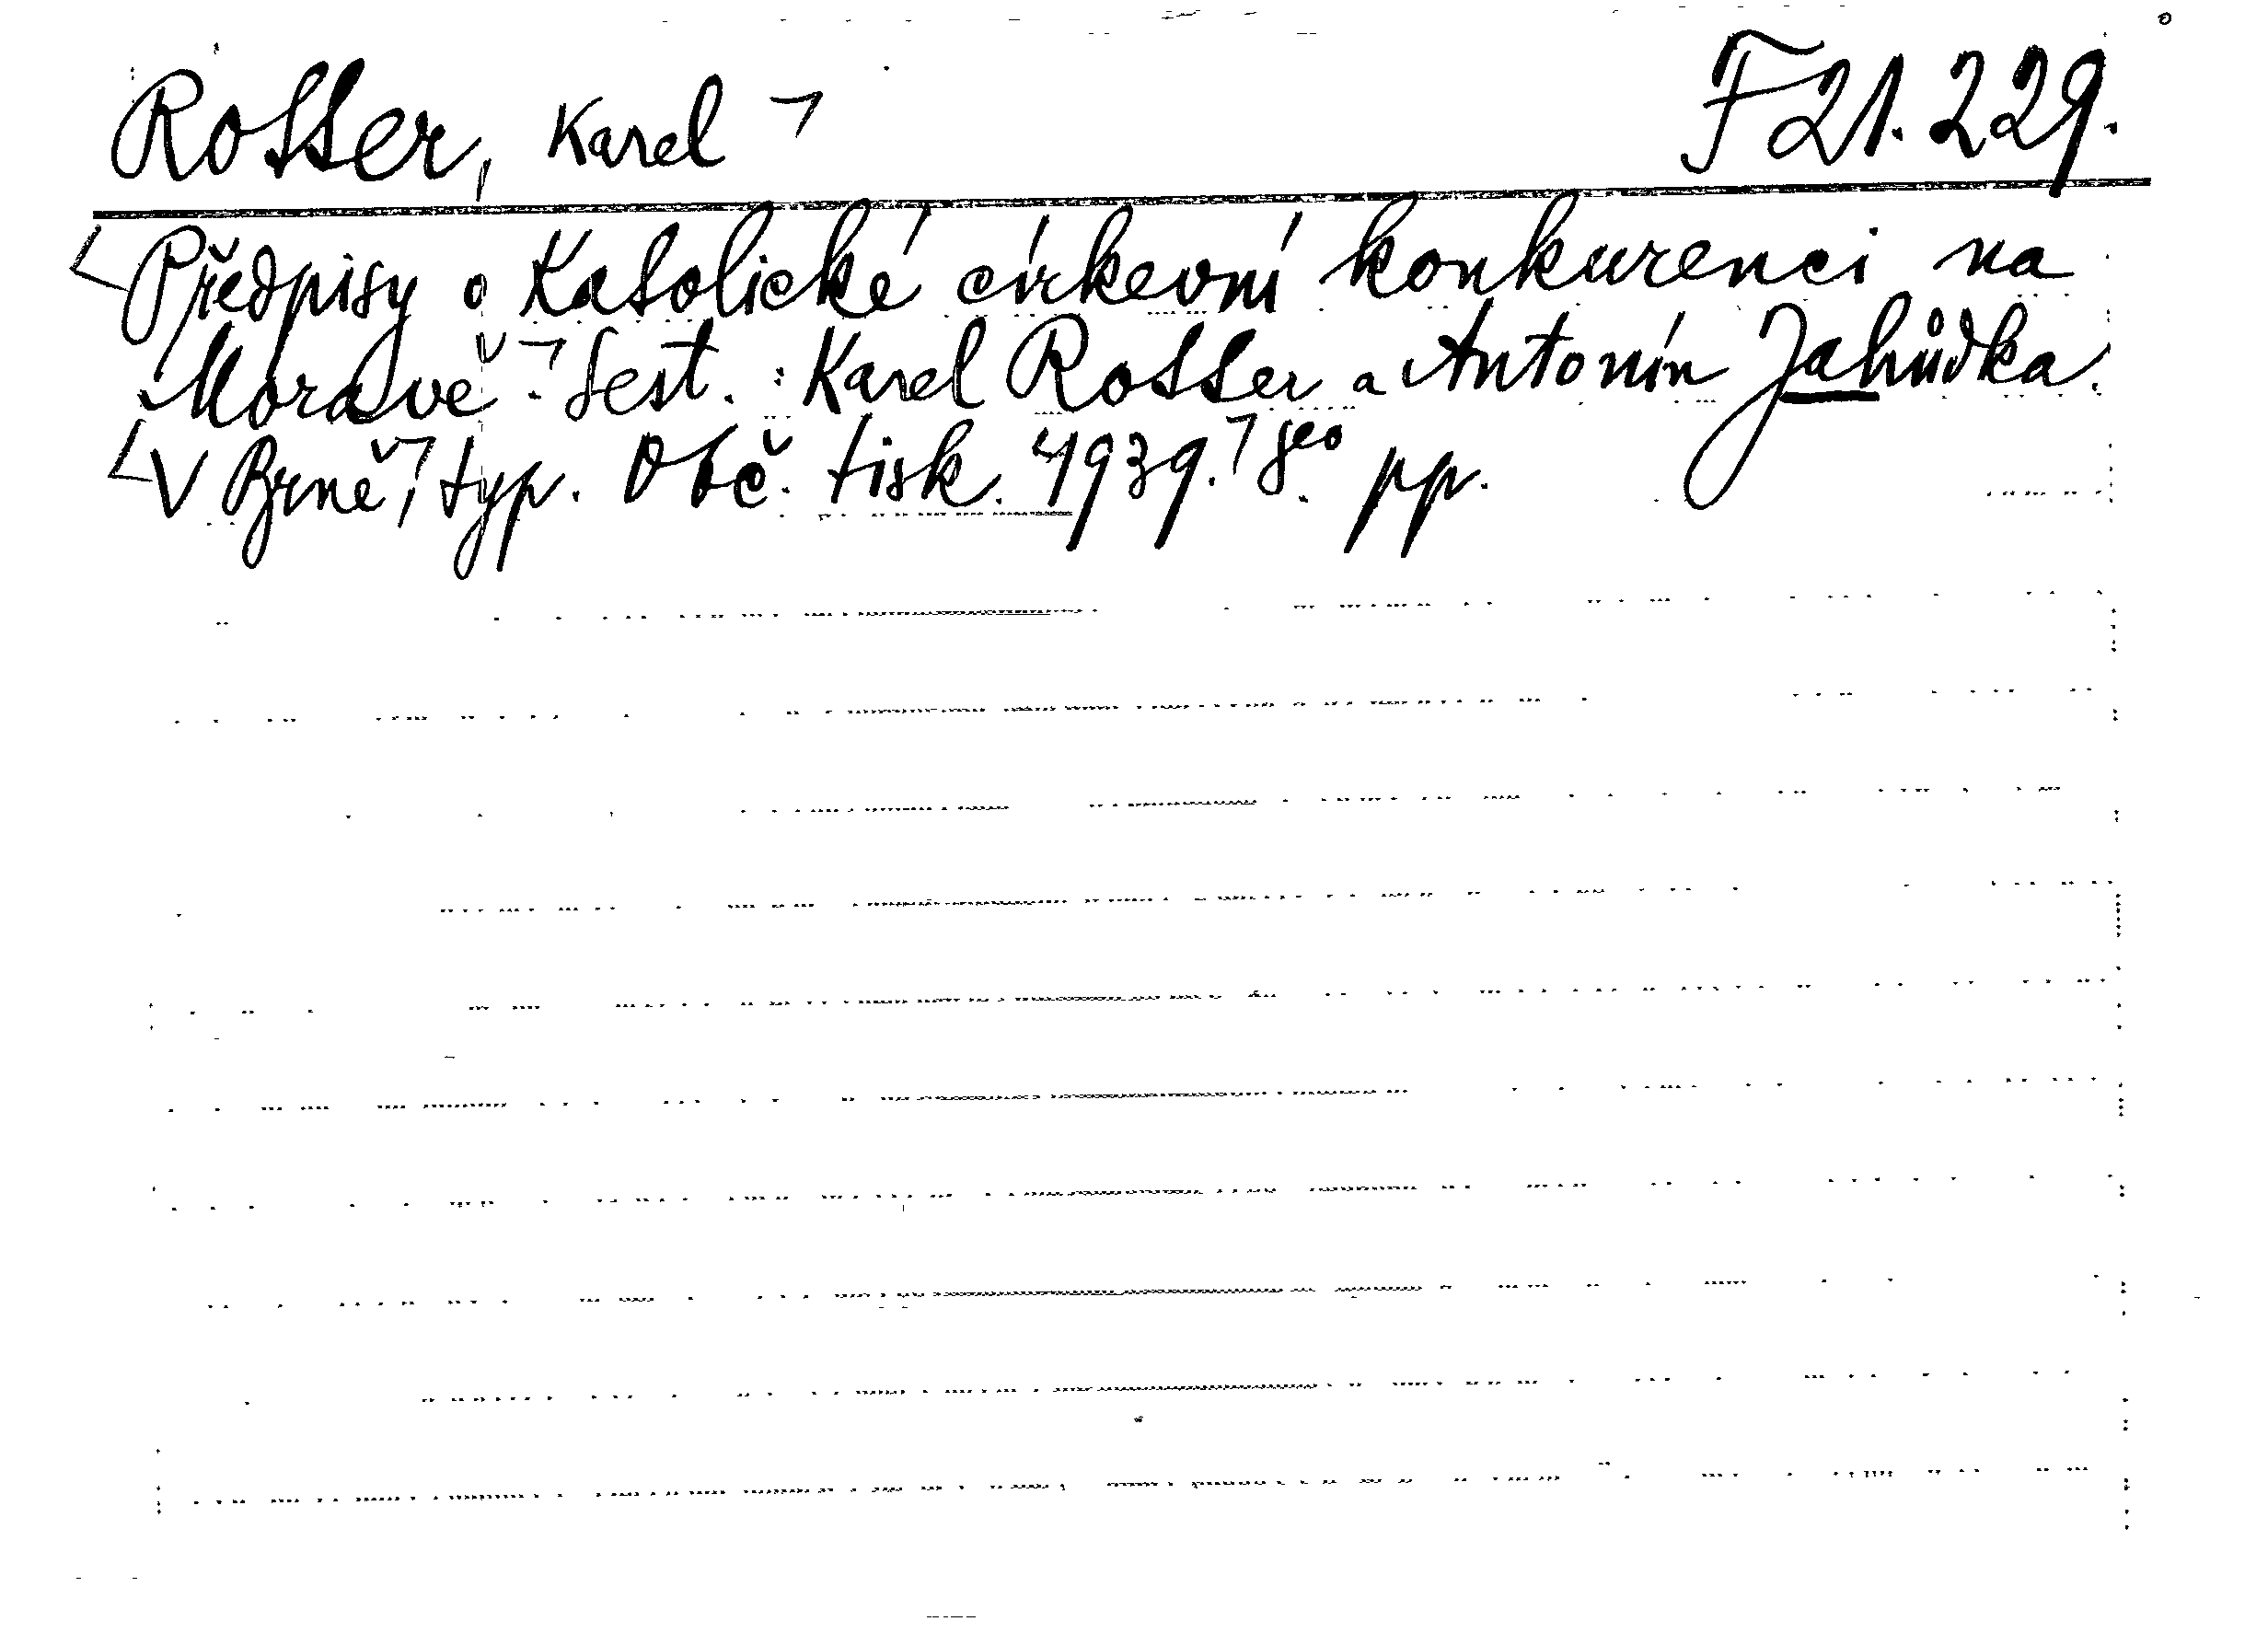 Rotter, Karel ¬ F 21.229.
Předpisy o katolické církevní konkurenci na
Moravě. ¬ Sest. : Karel Rotter a Antonín Jahůdka.
V Brně, ¬ typ. Obč. tisk. 1939. ¬ 8vo. pp.